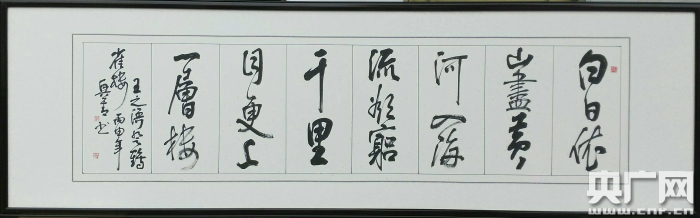 白日依
山盡黃
河入海
流欲窮
千里
目更上
一層樓
王之渙登鸛
雀樓 丙申年
書
央广网
www.cnr.cn